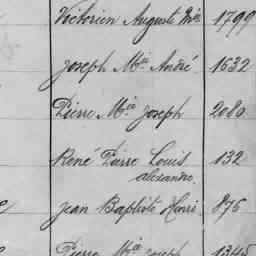 Victorien Auguste Mie 1799
Joseph Mie André 1632
Pierre Mie Joseph 2080
René Pierre Louis 132
alexandre
Jean Baptiste Henri 876
Pierre Mie Joseph 1345